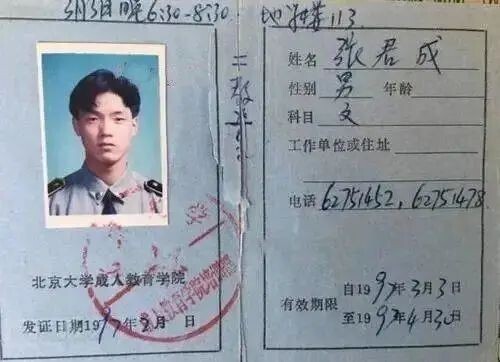 3月3日晚6:30-8:30
113
北京大学成人教育学院
发证日期1997年2月 日
姓名 张君成
性别 男 年龄
科目 文
工作单位或住址
电话 62751452, 62751478
有效期限
自1997年3月3日
至1997年4月30日